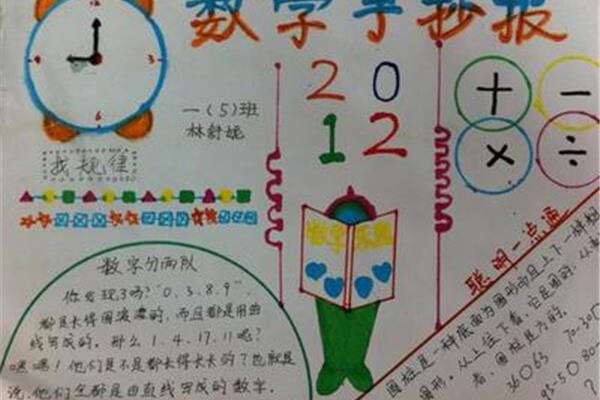 数字手抄报
12
3
6
9
一(5)班
林舒妮
2 0
1 2
+ −
× ÷
找规律
数学乐园
数字分两队
你发现了吗?“0、3、8、9”,
都是长得圆滚滚的,而且都是用曲
线写成的。那么1、4、17、11呢?
嘿嘿!他们是不是都长得长长的?也就是
说,他们全都是由直线写成的数字。
聪明一点通
圆柱是一种底面为圆形而且上下一样粗
图形。从上往下看,它是圆的,从
看,圆柱是方的。